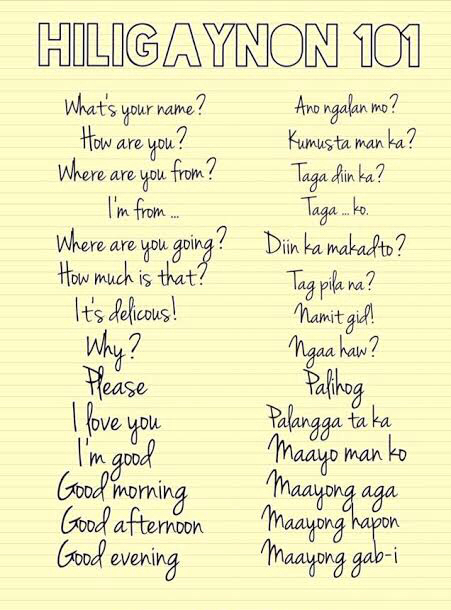 HILIGAYNON 101
What's your name? Ano ngalan mo?
How are you? Kumusta man ka?
Where are you from? Taga diin ka?
I'm from ... Taga ... ko.
Where are you going? Diin ka makadto?
How much is that? Tag pila na?
It's delicous! Namit gid!
Why? Ngaa haw?
Please Palihog
I love you Palangga ta ka
I'm good Maayo man ko
Good morning Maayong aga
Good afternoon Maayong hapon
Good evening Maayong gab-i